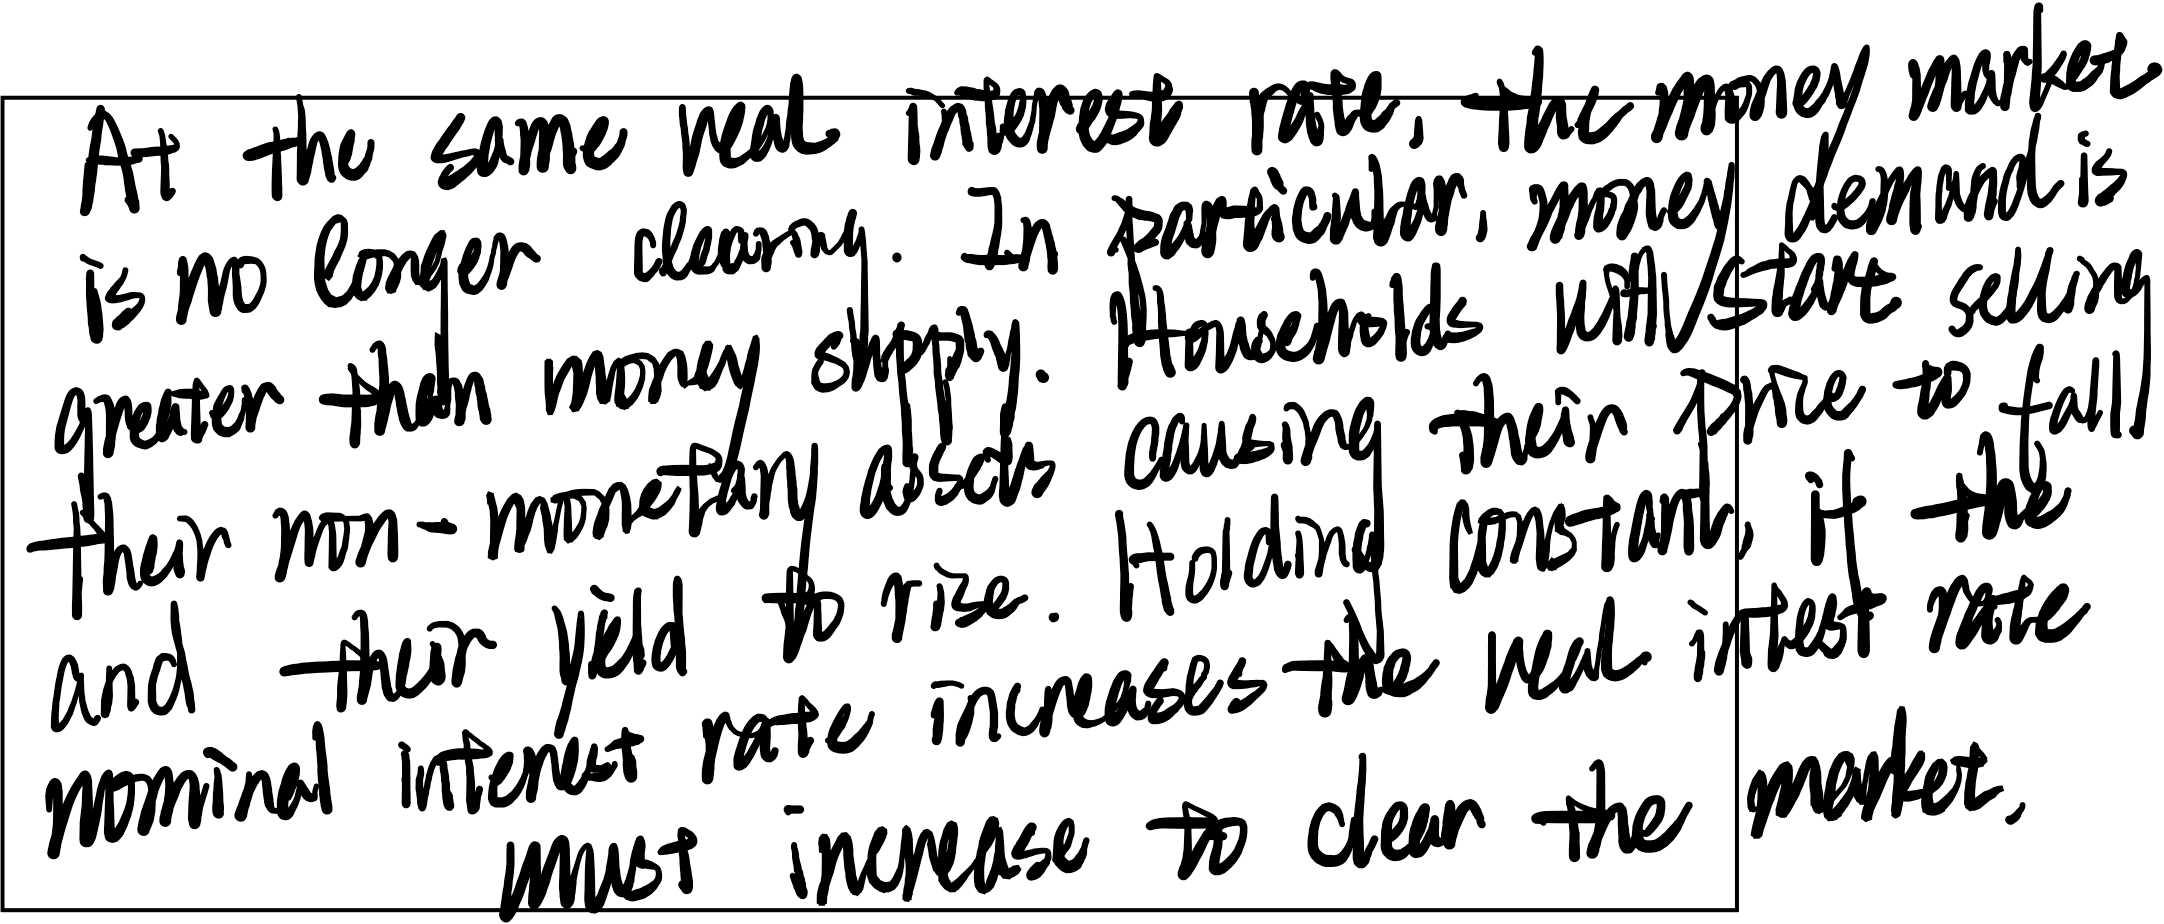 At the same real interest rate, the money market
is no longer clearing. In particular, money demand is
greater than money supply. Households will start selling
their non-monetary assets causing their price to fall
and their yield to rise. Holding constant, if the
nominal interest rate increases the real intest rate
must increase to clear the market.